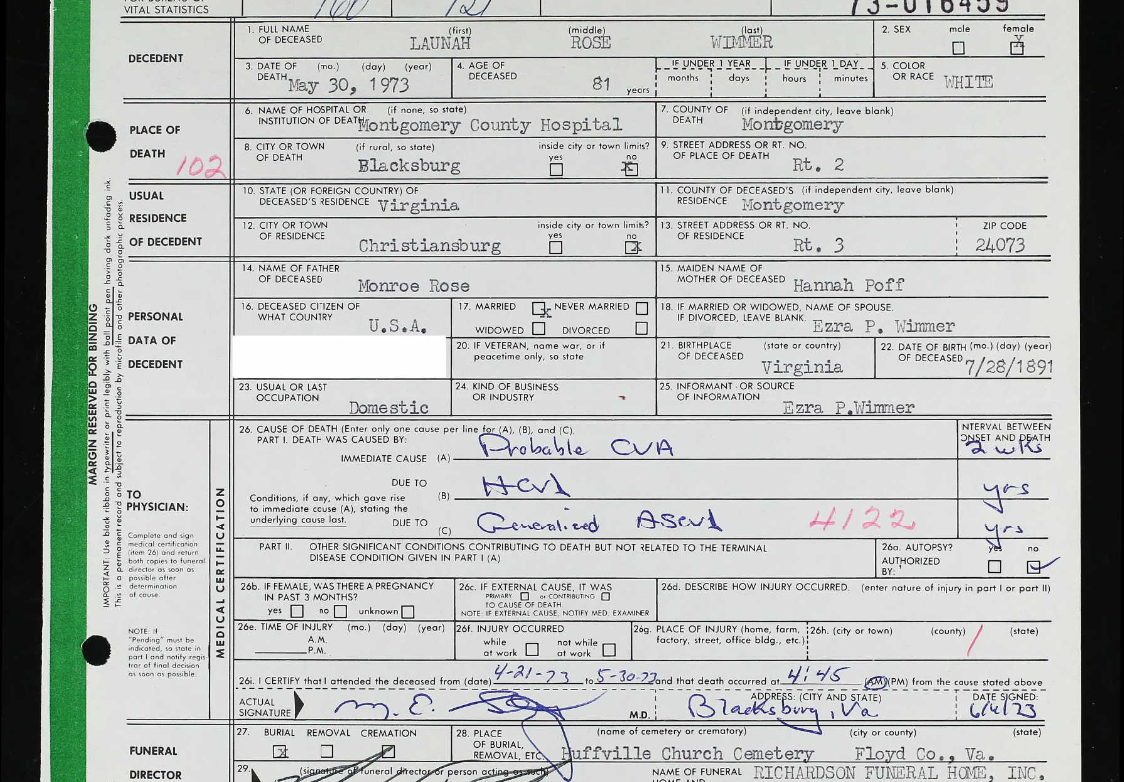 FOR BUREAU OF
VITAL STATISTICS
160 121
73-016459
DECEDENT
1. FULL NAME OF DECEASED (first) (middle) (last)
LAUNAH ROSE WIMMER
2. SEX male female X
3. DATE OF DEATH (mo.) (day) (year)
May 30, 1973
4. AGE OF DECEASED 81 years
IF UNDER 1 YEAR months days
IF UNDER 1 DAY hours minutes
5. COLOR OR RACE WHITE
PLACE OF DEATH
102
6. NAME OF HOSPITAL OR INSTITUTION OF DEATH (if none, so state)
Montgomery County Hospital
7. COUNTY OF DEATH (if independent city, leave blank)
Montgomery
8. CITY OR TOWN OF DEATH (if rural, so state)
Blacksburg
inside city or town limits? yes no X
9. STREET ADDRESS OR RT. NO. OF PLACE OF DEATH
Rt. 2
USUAL RESIDENCE OF DECEDENT
10. STATE (OR FOREIGN COUNTRY) OF DECEASED'S RESIDENCE
Virginia
11. COUNTY OF DECEASED'S RESIDENCE (if independent city, leave blank)
Montgomery
12. CITY OR TOWN OF RESIDENCE
Christiansburg
inside city or town limits? yes no X
13. STREET ADDRESS OR RT. NO. OF RESIDENCE
Rt. 3
ZIP CODE
24073
PERSONAL DATA OF DECEDENT
14. NAME OF FATHER OF DECEASED
Monroe Rose
15. MAIDEN NAME OF MOTHER OF DECEASED
Hannah Poff
16. DECEASED CITIZEN OF WHAT COUNTRY
U.S.A.
17. MARRIED X NEVER MARRIED
WIDOWED DIVORCED
18. IF MARRIED OR WIDOWED, NAME OF SPOUSE. IF DIVORCED, LEAVE BLANK.
Ezra P. Wimmer
20. IF VETERAN, name war, or if peacetime only, so state
21. BIRTHPLACE OF DECEASED (state or country)
Virginia
22. DATE OF BIRTH OF DECEASED (mo.) (day) (year)
7/28/1891
23. USUAL OR LAST OCCUPATION
Domestic
24. KIND OF BUSINESS OR INDUSTRY
25. INFORMANT - OR SOURCE OF INFORMATION
Ezra P.Wimmer
MARGIN RESERVED FOR BINDING
IMPORTANT: Use black ribbon in typewriter or print legibly with ball point pen having dark unfading ink.
This is a permanent record and subject to reproduction by microfilm and other photographic process.
TO PHYSICIAN:
Complete and sign
medical certification
(item 26) and return
both copies to funeral
director as soon as
possible after
determination
of cause.
NOTE: If
"Pending" must be
indicated, so state in
part I and notify regis-
trar of final decision
as soon as possible.
MEDICAL CERTIFICATION
26. CAUSE OF DEATH (Enter only one cause per line for (A), (B), and (C).
PART I. DEATH WAS CAUSED BY:
INTERVAL BETWEEN ONSET AND DEATH
IMMEDIATE CAUSE (A) Probable CVA 2 wks
Conditions, if any, which gave rise to immediate cause (A), stating the underlying cause last.
DUE TO (B) HCVD yrs
DUE TO (C) Generalized ASCVD 4122 yrs
PART II. OTHER SIGNIFICANT CONDITIONS CONTRIBUTING TO DEATH BUT NOT RELATED TO THE TERMINAL DISEASE CONDITION GIVEN IN PART I (A)
26a. AUTOPSY? yes no
AUTHORIZED BY:
26b. IF FEMALE, WAS THERE A PREGNANCY IN PAST 3 MONTHS?
yes no unknown
26c. IF EXTERNAL CAUSE, IT WAS
PRIMARY or CONTRIBUTING
TO CAUSE OF DEATH
NOTE: IF EXTERNAL CAUSE, NOTIFY MED. EXAMINER
26d. DESCRIBE HOW INJURY OCCURRED. (enter nature of injury in part I or part II)
26e. TIME OF INJURY (mo.) (day) (year)
A.M.
P.M.
26f. INJURY OCCURRED
while at work not while at work
26g. PLACE OF INJURY (home, farm, factory, street, office bldg., etc.)
26h. (city or town) (county) (state)
26i. I CERTIFY that I attended the deceased from (date) 4-21-73 to 5-30-73 and that death occurred at 4:45 (AM) (PM) from the cause stated above
ACTUAL SIGNATURE M. E. M.D.
ADDRESS: (CITY AND STATE)
Blacksburg, Va
DATE SIGNED:
6/4/73
FUNERAL DIRECTOR
27. BURIAL X REMOVAL CREMATION
28. PLACE OF BURIAL, REMOVAL, ETC. (name of cemetery or crematory) (city or county) (state)
Huffville Church Cemetery Floyd Co., Va.
29. (signature of funeral director or person acting as such)
NAME OF FUNERAL RICHARDSON FUNERAL HOME, INC.